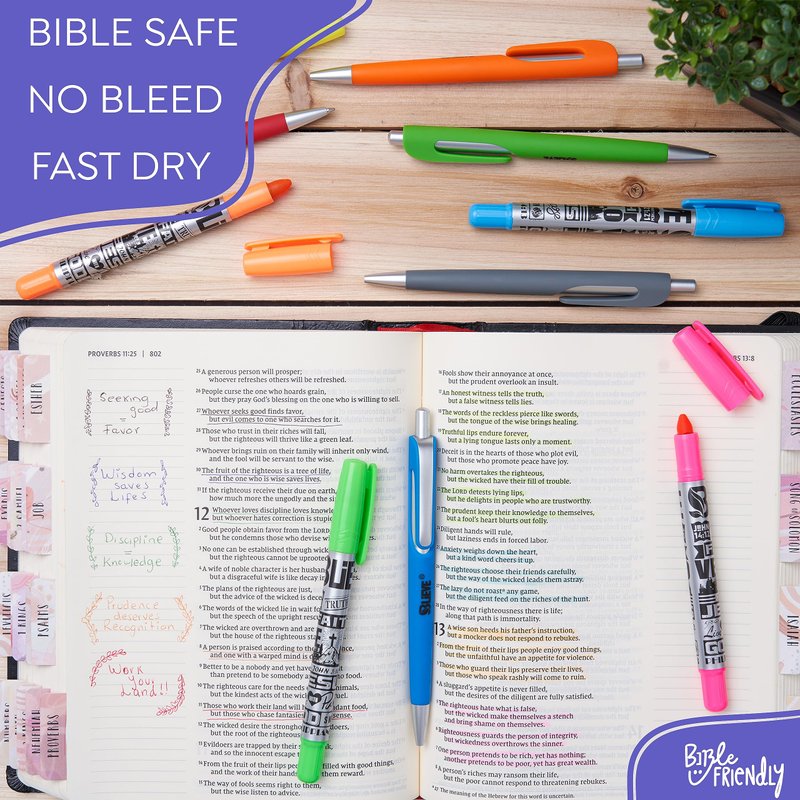 BIBLE SAFE
NO BLEED
FAST DRY
PROVERBS 11:25 | 802
Seeking
good
=
Favor
Wisdom
saves
Lifes
Discipline
=
Knowledge
Prudence
deserves
Recognition
Work
you
Land!!
25 A generous person will prosper;
whoever refreshes others will be refreshed.
26 People curse the one who hoards grain,
but they pray God's blessing on the one who is willing to sell.
27 Whoever seeks good finds favor,
but evil comes to one who searches for it.
28 Those who trust in their riches will fall,
but the righteous will thrive like a green leaf.
29 Whoever brings ruin on their family will inherit only wind,
and the fool will be servant to the wise.
30 The fruit of the righteous is a tree of life,
and the one who is wise saves lives.
31 If the righteous receive their due on earth,
how much more the ungodly and the
12 Whoever loves discipline loves
but whoever hates correction is stupid
2 Good people obtain favor from the LORD
but he condemns those who devise
3 No one can be established through
but the righteous cannot be uprooted
4 A wife of noble character is her
but a disgraceful wife is like decay in
5 The plans of the righteous are just,
but the advice of the wicked is
6 The words of the wicked lie in wait for
but the speech of the upright
7 The wicked are overthrown and are
but the house of the righteous
8 A person is praised according to
and one with a warped mind is
9 Better to be a nobody and yet have
than pretend to be somebody and
10 The righteous care for the needs of
but the kindest acts of the wicked
11 Those who work their land will have abundant food,
but those who chase fantasies
12 The wicked desire the stronghold
but the root of the righteous
13 Evildoers are trapped by their
and so the innocent escape
14 From the fruit of their lips people are filled with good things,
and the work of their hands brings them reward.
15 The way of fools seems right to them,
but the wise listen to advice.
13:8
16 Fools show their annoyance at once,
but the prudent overlook an insult.
17 An honest witness tells the truth,
but a false witness tells lies.
18 The words of the reckless pierce like swords,
but the tongue of the wise brings healing.
19 Truthful lips endure forever,
but a lying tongue lasts only a moment.
20 Deceit is in the hearts of those who plot evil,
but those who promote peace have joy.
21 No harm overtakes the righteous,
but the wicked have their fill of trouble.
22 The LORD detests lying lips,
but he delights in people who are trustworthy.
23 The prudent keep their knowledge to themselves,
but a fool's heart blurts out folly.
24 Diligent hands will rule,
but laziness ends in forced labor.
25 Anxiety weighs down the heart,
but a kind word cheers it up.
26 The righteous choose their friends carefully,
but the way of the wicked leads them astray.
27 The lazy do not roast any game,
but the diligent feed on the riches of the hunt.
28 In the way of righteousness there is life;
along that path is immortality.
13 A wise son heeds his father's instruction,
but a mocker does not respond to rebukes.
2 From the fruit of their lips people enjoy good things,
but the unfaithful have an appetite for violence.
3 Those who guard their lips preserve their lives,
but those who speak rashly will come to ruin.
4 A sluggard's appetite is never filled,
but the desires of the diligent are fully satisfied.
5 The righteous hate what is false,
but the wicked make themselves a stench
and bring shame on themselves.
6 Righteousness guards the person of integrity,
but wickedness overthrows the sinner.
7 One person pretends to be rich, yet has nothing;
another pretends to be poor, yet has great wealth.
8 A person's riches may ransom their life,
but the poor cannot respond to threatening rebukes.
27 The meaning of the Hebrew for this word is uncertain.
ESTHER
JOB
2 SAMUEL
PSALMS
1 KINGS
PROVERBS
NEHEMIAH
NUMBERS
SONG OF SOLOMON
ISAIAH
TRUTH
JOHN
14:12
Bible
FRIENDLY